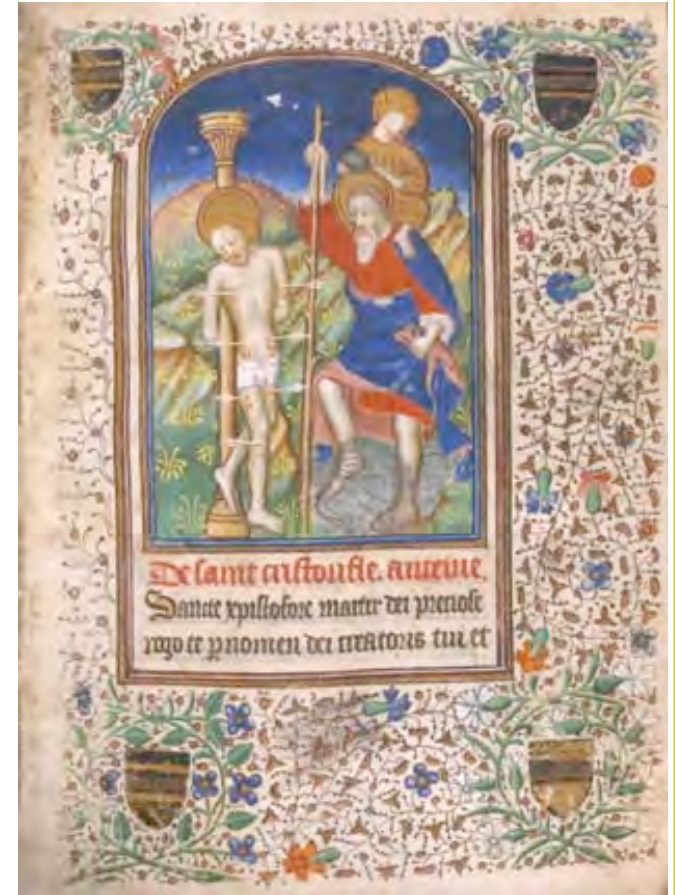 De saint cristoufle. anteine.
Sancte xpistofore martir dei preciose
rogo te pnomen dei creatoris tui et